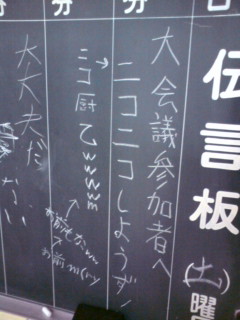 伝言板
(土)曜
分
分
大会議参加者へ
ニコニコしようず!
→ニコ厨乙wwwww
↑
お前もなw
お前m(ry
大丈夫だ
ない